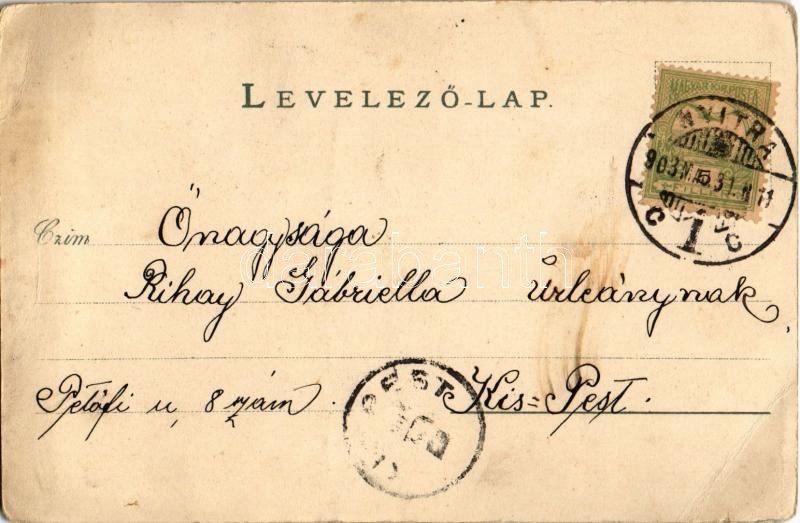 LEVELEZŐ-LAP.
MAGYAR KIR. POSTA
NYITRA
C 1 C
Czim Őnagysága
Rihay Gábriella Úrleánynak,
Petőfi u, 8 szám. Kis=Pest.
darabanth